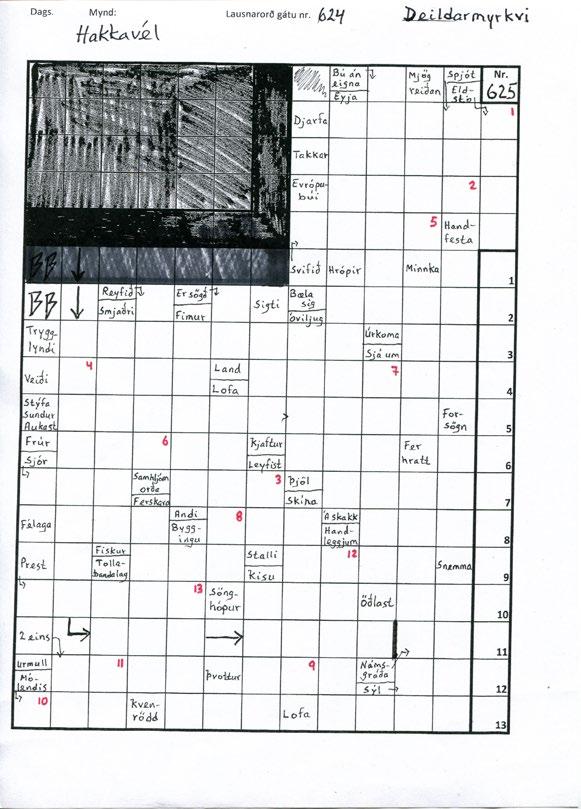 Dags. Mynd: Lausnarorð gátu nr. 624 Deildarmyrkvi
Hakkavél
Bú án eigna
Eyja
Mjög reiðan
Spjót
Eld-stól
Nr. 625
1
Djarfa
Takkar
Evrópu-búi
2
5
Hand-festa
BB
Svifið
Hrópir
Minnka
1
BB
Reyfið
Smjaðri
Er sögð
Fimur
Sigti
Bæla sig
Óviljug
2
Trygg-lyndi
Úrkoma
Sjá um
3
Veiði
4
Land
Lofa
7
4
Stýfa sundur
Aukast
For-sögn
5
Frúr
Sjór
6
Kjaftur
Leyfist
Fer hratt
6
Samhljóm orða
Ferskara
3
Þjöl
Skína
7
Félaga
Andi
Bygg-ingu
8
Á skakk
Hand-leggjum
8
Prest
Fiskur
Tolla-bandalag
Stalli
Kisu
12
Snemma
9
13
Söng-hópur
Öðlast
10
2 eins
11
Urmull
Mó-lendis
11
Þvottur
9
Náms-gráða
Sýl
12
10
Kven-rödd
Lofa
13